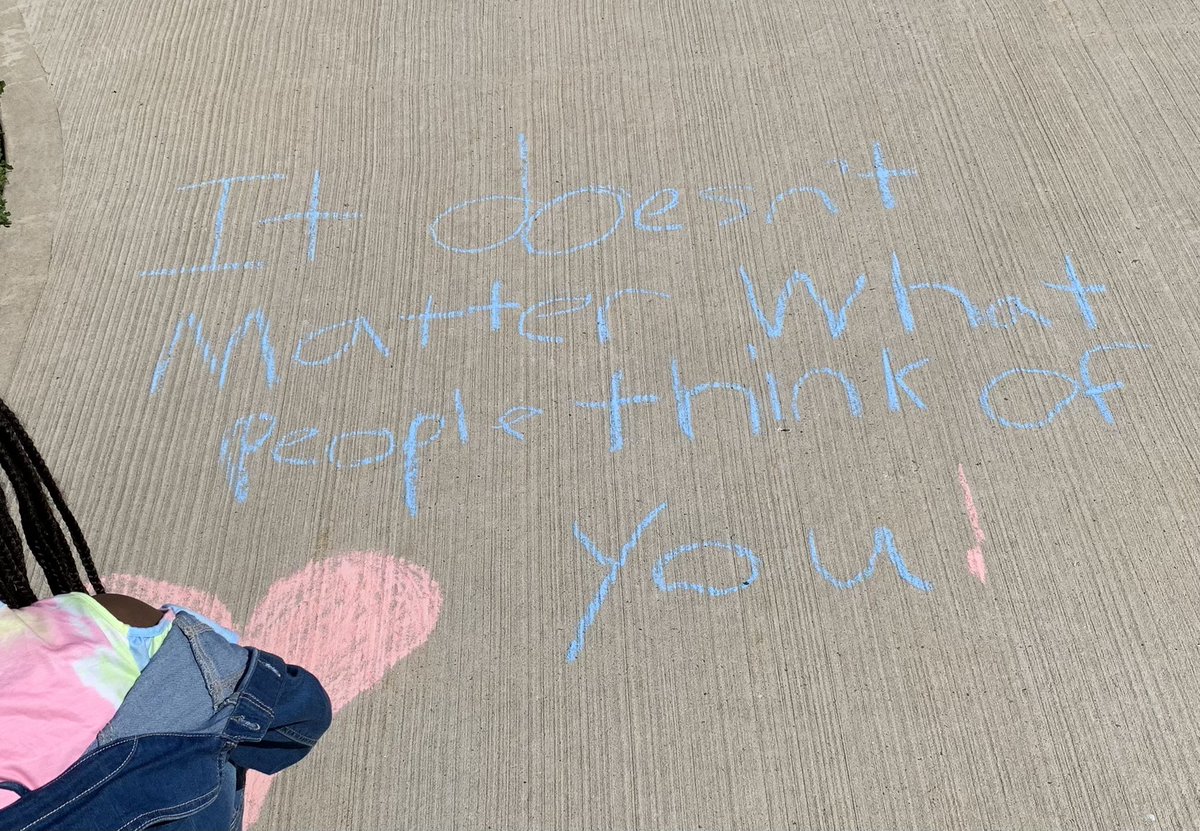 It doesn't
Matter What
people think of
you!